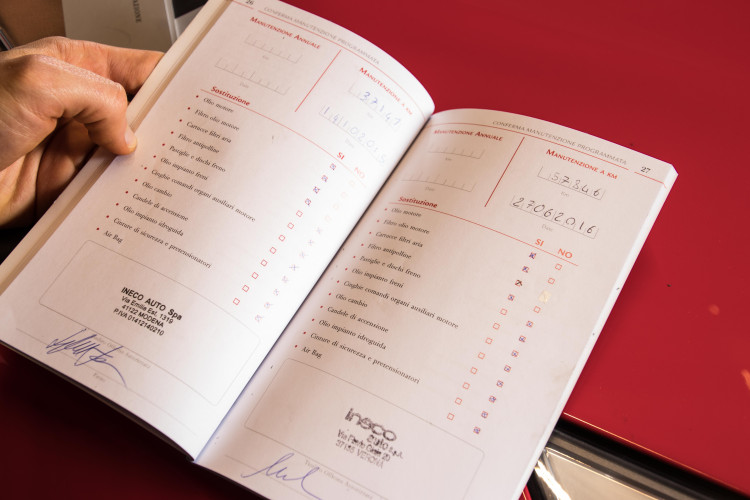 26
CONFERMA MANUTENZIONE PROGRAMMATA
MANUTENZIONE ANNUALE
MANUTENZIONE A KM
37147
Sostituzione
SI NO
Olio motore
Filtro olio motore
Cartucce filtri aria
Filtro antipolline
Pastiglie e dischi freno
Olio impianto freni
Cinghie comandi organi ausiliari motore
Olio cambio
Candele di accensione
Olio impianto idroguida
Cinture di sicurezza e pretensionatori
Air Bag
INECO AUTO Spa
Via Emilia Est, 1319
41122 MODENA
P.IVA 01472140210
CONFERMA MANUTENZIONE PROGRAMMATA
27
MANUTENZIONE ANNUALE
MANUTENZIONE A KM
57846
27062016
Sostituzione
SI NO
Olio motore
Filtro olio motore
Cartucce filtri aria
Filtro antipolline
Pastiglie e dischi freno
Olio impianto freni
Cinghie comandi organi ausiliari motore
Olio cambio
Candele di accensione
Olio impianto idroguida
Cinture di sicurezza e pretensionatori
Air Bag
ineco
auto s.p.a.
37135 VERONA